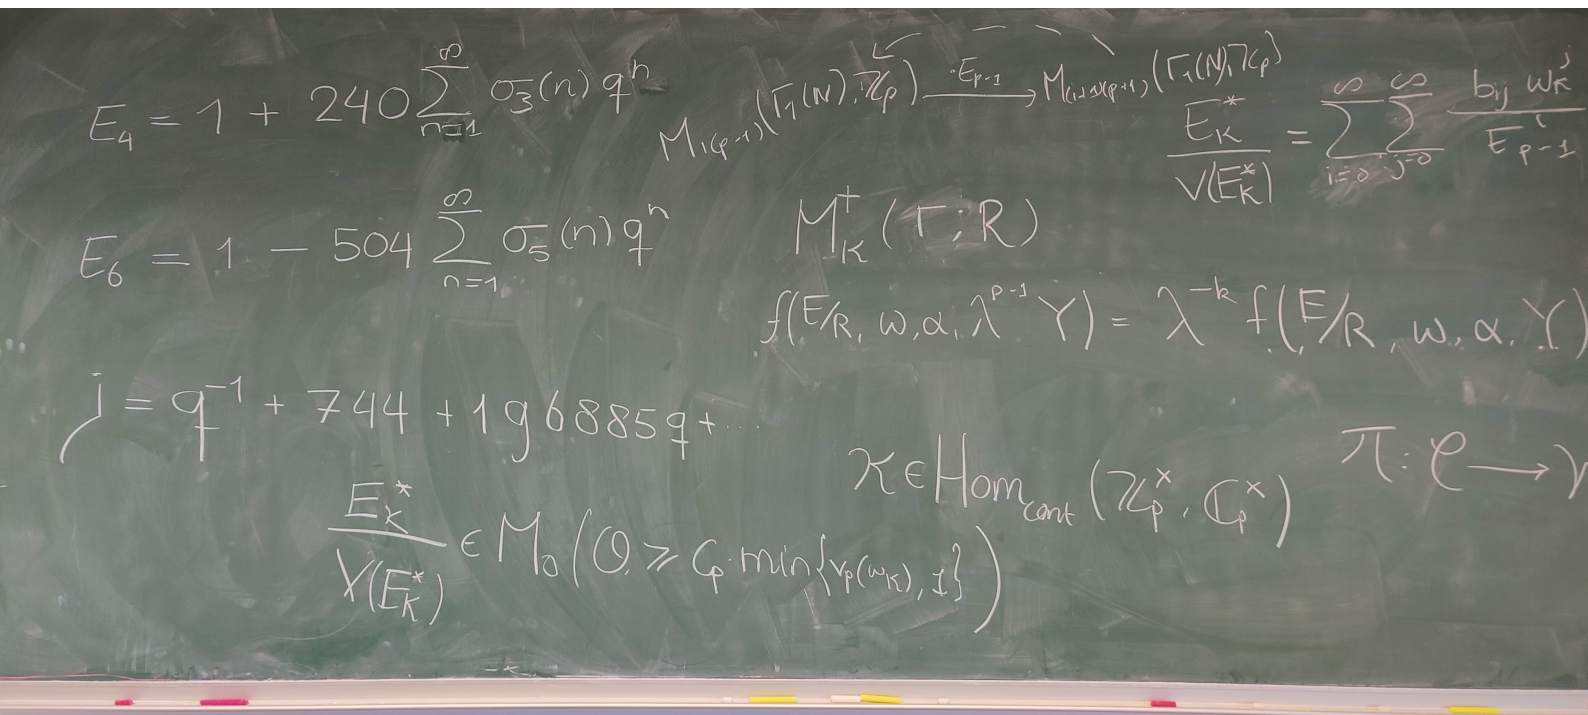 E₄ = 1 + 240 ∑_{n=1}^{∞} σ₃(n) qⁿ
M_{i(p-1)}(Γ₁(N), ℤ_p) —·E_{p-1}→ M_{(i+1)(p-1)}(Γ₁(N), ℤ_p)
E_κ^* / V(E_κ^*) = ∑_{i=0}^{∞} ∑_{j=0}^{∞} b_{ij} w_κ^j / E_{p-1}^i
E₆ = 1 − 504 ∑_{n=1}^{∞} σ₅(n) qⁿ
M_κ^+(Γ; R)
f(E/R, ω, α, λ^{p-1} Y) = λ^{-k} f(E/R, ω, α, Y)
j = q^{-1} + 744 + 196885q + ...
κ ∈ Hom_{cont}(ℤ_p^×, ℂ_p^×)
π: ℰ →
E_κ^* / V(E_κ^*) ∈ M₀(𝒪, ≥ C_p · min{v_p(w_κ), 1})